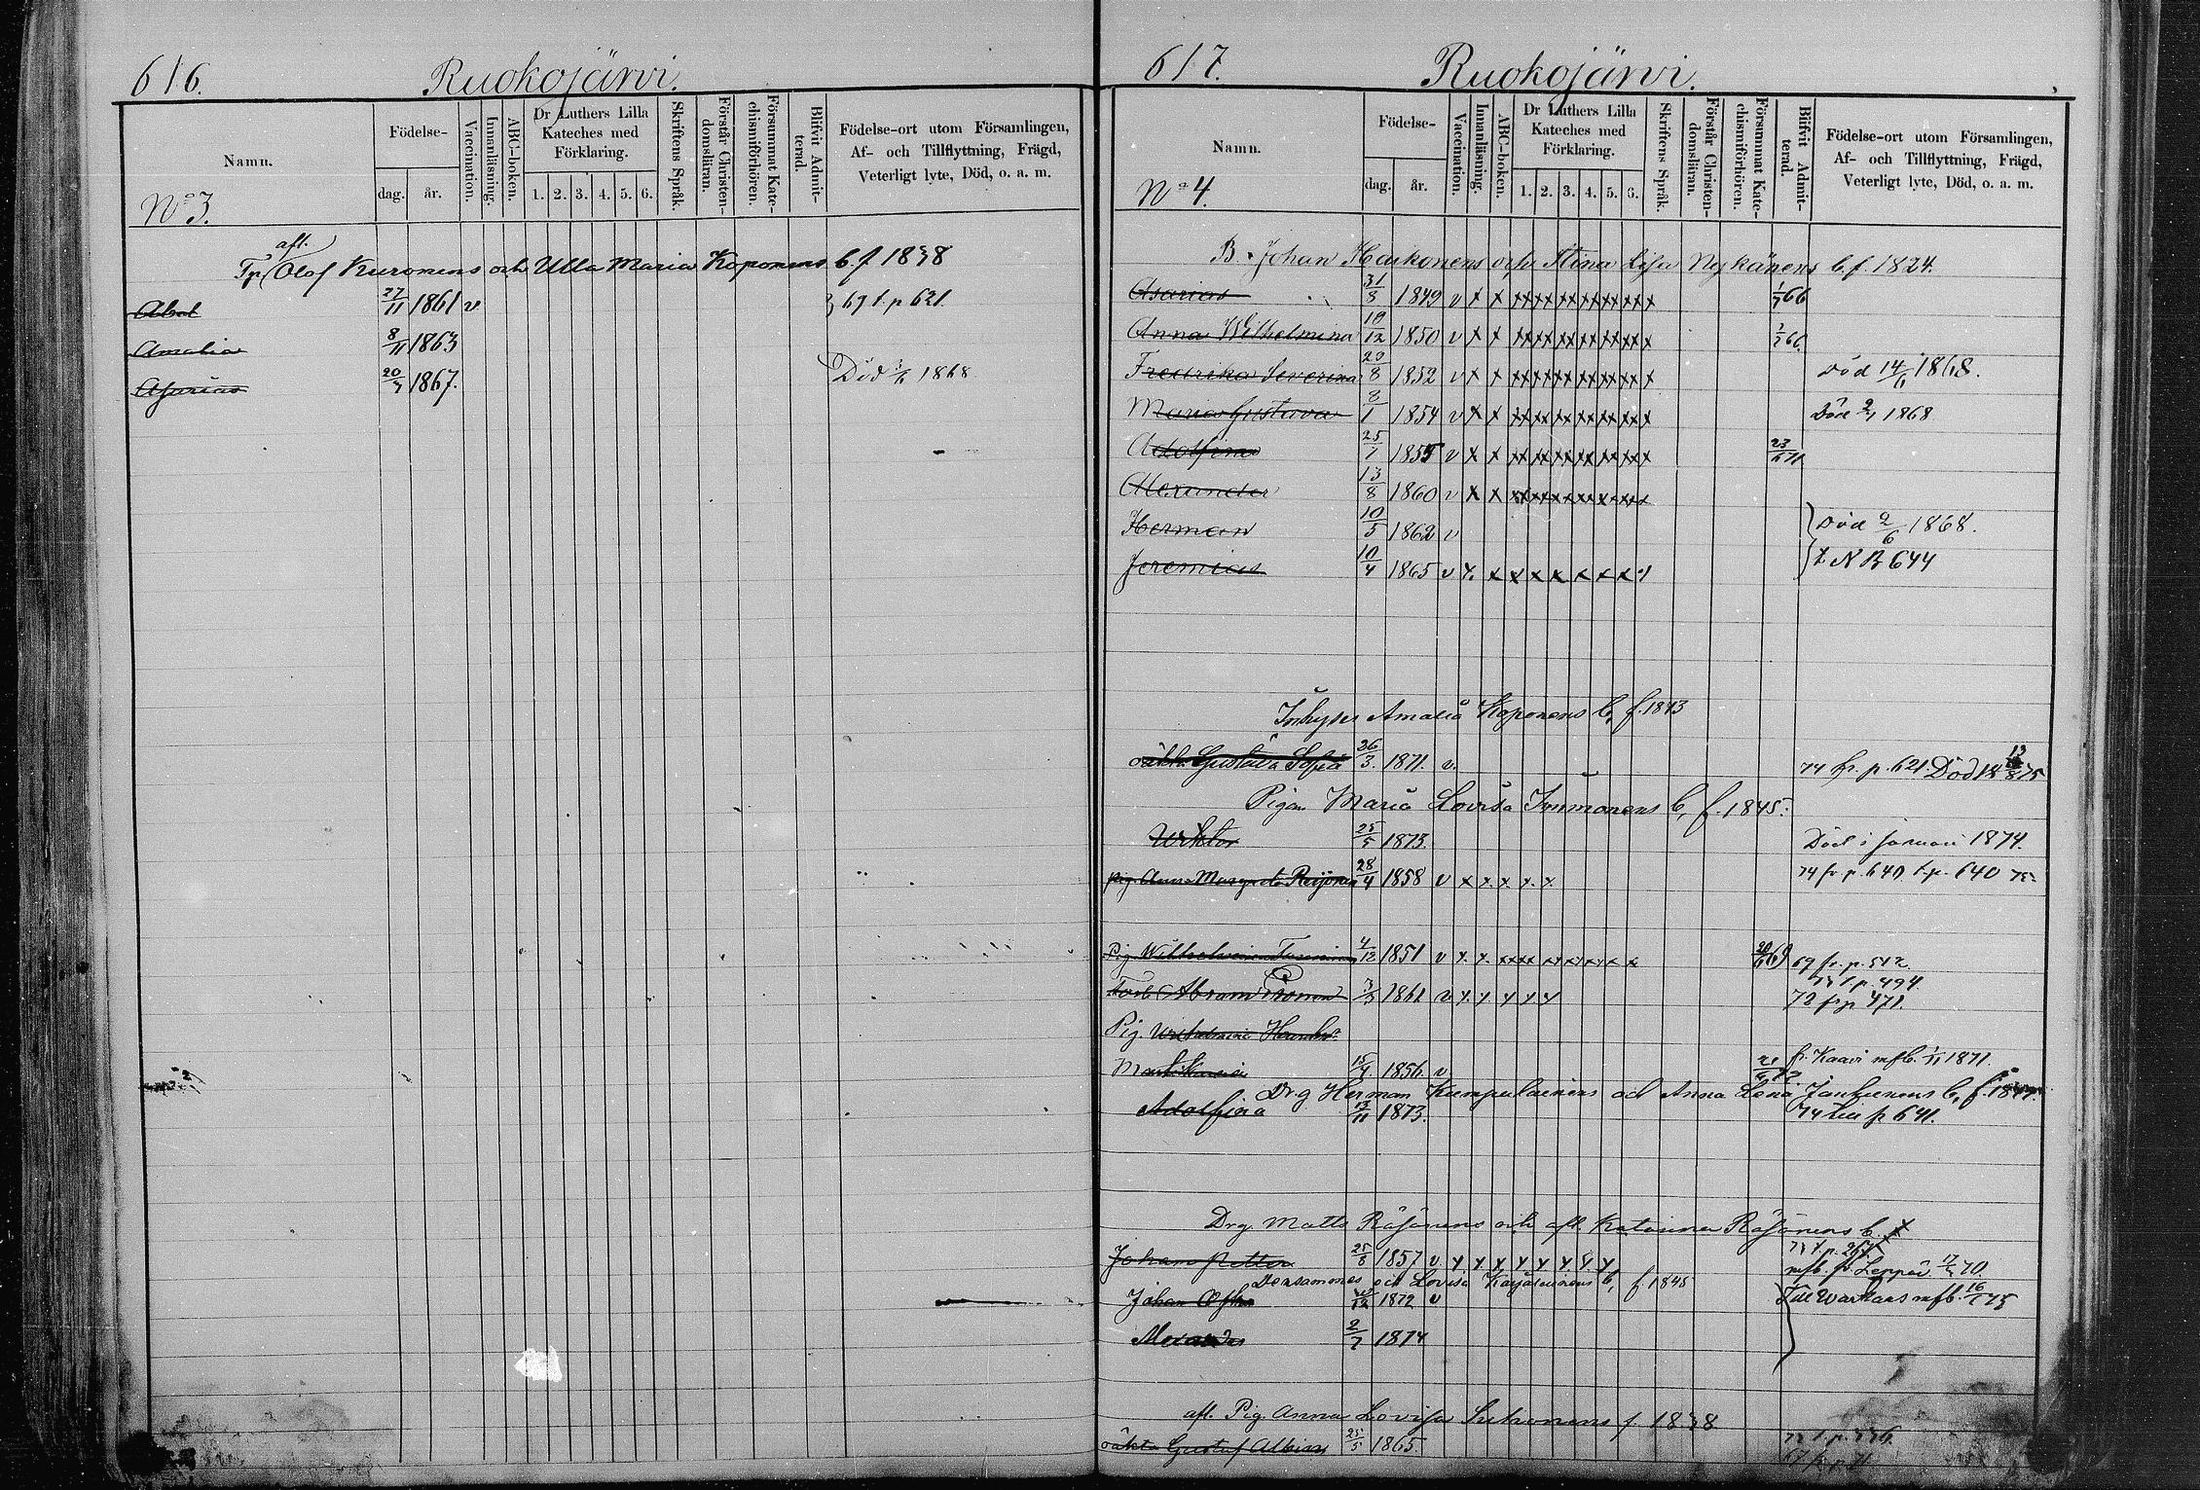 616.
Ruokojärvi.
Namn.
Födelse-
dag.
år.
Vaccination.
Innanläsning.
ABC-boken.
Dr Luthers Lilla
Kateches med
Förklaring.
1. 2. 3. 4. 5. 6.
Skriftens Språk.
Förstår Christen-
domsläran.
Försummat Kate-
chismiförhören.
Blifvit Admit-
terad.
Födelse-ort utom Församlingen,
Af- och Tillflyttning, Frägd,
Veterligt lyte, Död, o. a. m.
No 3.
afl.
Olof Kuronens och Ulla Maria Koponens b. f 1838
Abel 27/11 1861 v 69 t. p 621
Amalia 8/11 1863
Asarias 20/7 1867. Död 1868
617.
Ruokojärvi.
Namn.
Födelse-
dag.
år.
Vaccination.
Innanläsning.
ABC-boken.
Dr Luthers Lilla
Kateches med
Förklaring.
1. 2. 3. 4. 5. 6.
Skriftens Språk.
Förstår Christen-
domsläran.
Försummat Kate-
chismiförhören.
Blifvit Admit-
terad.
Födelse-ort utom Församlingen,
Af- och Tillflyttning, Frägd,
Veterligt lyte, Död, o. a. m.
No 4.
B. Johan Hankonens och Stina Lisa Nykänens b. f. 1824.
Asarias 31/8 1849 v x x xx xx xx xx xx xx x 66
Anna Wilhelmina 10/12 1850 v x x xx xx xx xx xx xx x 66.
Fredrika Severina 29/8 1852 v x x xx xx xx xx xx xx x Död 14/6 1868.
Maria Gustava 8/1 1854 v x x xx xx xx xx xx xx x Död 1868
Adolfina 25/7 1855 v x x xx xx xx xx xx xx x 71
Alexander 13/8 1860 v x x xx xx xx xx xx xx x
Herman 10/5 1862 v Död 2/6 1868.
Jeremias 10/4 1865 v x. x x x x x x x t. N B 644
Inhyses Amalia Koponens b, f. 1843
oäkta Gustava Sofia 26/3. 1871. v. 74 fr. p. 621 Död 75
Pigan Maria Lovisa Immonens b, f. 1845.
Wiktor 25/5 1873. Död i Januari 1874.
pig. Anna Margreta 28/4 1858 v x x x x x 74 fr p. 640 t. p. 640
Pig. Wilhelmina 4/12 1851 v x. x. 69 fr. p. 512.
t. p. 494
Abram 1861 v x x x x x 72 fr p 471.
Pig. Wilhelmina
15/4 1856 v fr. Kaavi mfb. 1/11 1871
Drg Herman Kumpulainens och Anna Lena Jauhiainens b, f. 1847.
Adolfina 13/11 1873. 74 p 641.
Drg. Matts Räsänens och afl. Katarina Räsänens b.
Johan Petter 25/8 1857 v x x x x x x x x x t. p. 267
mfb. fr Leppäv. 70
Densammes och Lovisa b, f. 1845
Johan 1872 v till Warkaus mfb. 75
Alexander 2/7 1874
afl. Pig. Anna Lovisa Suhonens f. 1838
oäkta Gustaf Albin 25/5 1865.